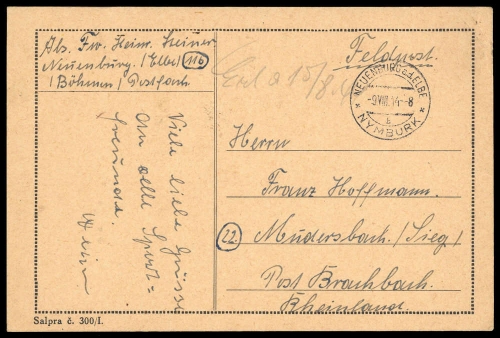 Abs. Fw. Heinr. Steiner
Neuenburg. /Elbe/ 11b
/Böhmen/ Postfach
Feldpost.
NEUENBURG a.d. ELBE
-9.VIII.44-8
b
NYMBURK
Erh. a 15/8.
Herrn
Franz Hoffmann.
22
Mudersbach. /Sieg/
Post Brachbach.
Rheinland.
Viele liebe Grüsse
an alle Sport=
freunde.
Hein
Salpra č. 300/I.